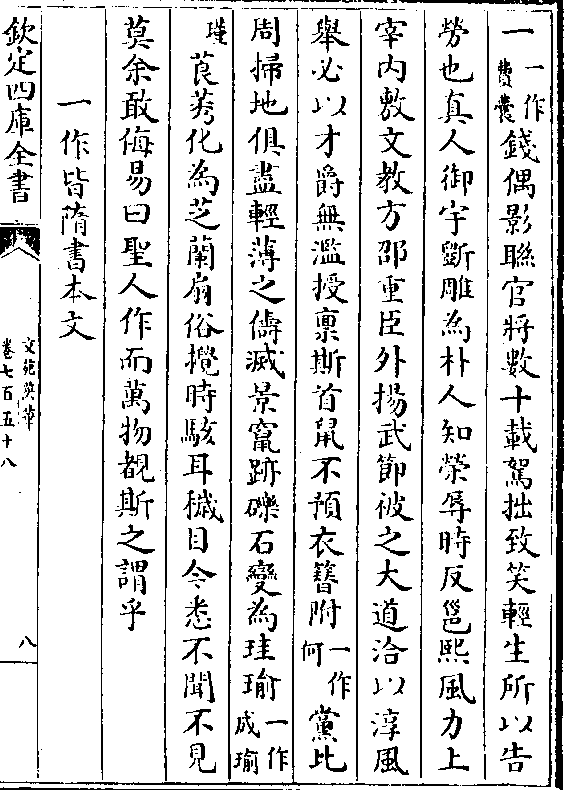 一一作費囊錢偶影聮官將數十載駑拙致笑輕生所以告
勞也真人御宇斷雕為朴人知榮辱時反邕熙風力上
宰内敷文教方邵重臣外揚武節被之大道洽以淳風
舉必以才爵無濫授禀斯首鼠不預衣簪附一作何黨比
周掃地俱盡輕薄之儔滅景竄跡礫石變為珪瑜一作成瑜
瑾莨莠化為芝蘭扇俗攪時駭耳穢目今悉不聞不見
莫余敢侮易曰聖人作而萬物覩斯之謂乎
一作皆隋書本文
欽定四庫全書
文苑英華
卷七百五十八
八